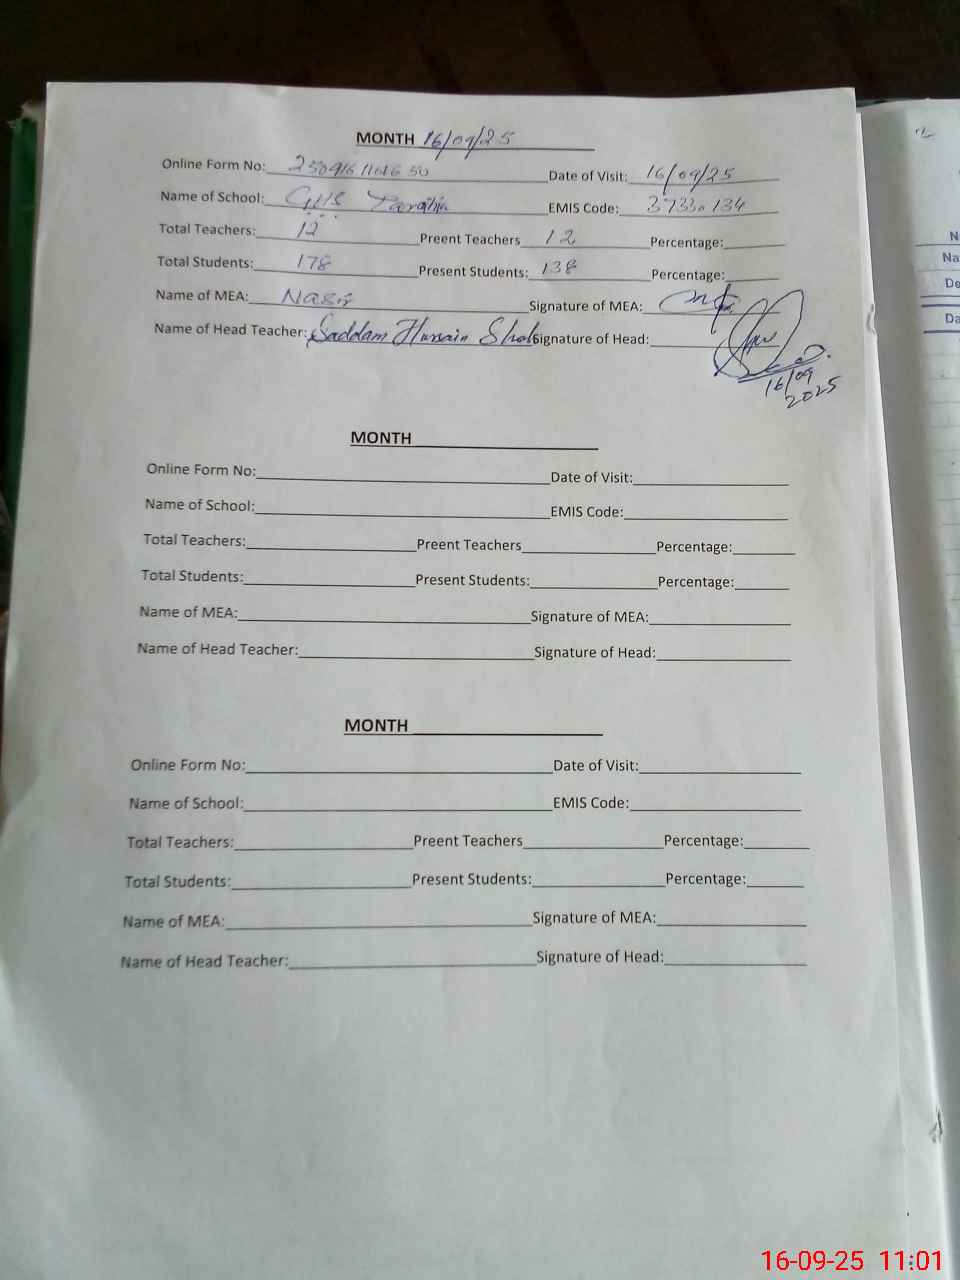 MONTH 16/09/25
Online Form No: Date of Visit: 16/09/25
Name of School: GHS EMIS Code: 37330134
Total Teachers: 12 Preent Teachers 12 Percentage:
Total Students: 178 Present Students: 138 Percentage:
Name of MEA: Nasir Signature of MEA:
Name of Head Teacher: Saddam Hussain Shah Signature of Head:
16/09
2025
MONTH
Online Form No: Date of Visit:
Name of School: EMIS Code:
Total Teachers: Preent Teachers Percentage:
Total Students: Present Students: Percentage:
Name of MEA: Signature of MEA:
Name of Head Teacher: Signature of Head:
MONTH
Online Form No: Date of Visit:
Name of School: EMIS Code:
Total Teachers: Preent Teachers Percentage:
Total Students: Present Students: Percentage:
Name of MEA: Signature of MEA:
Name of Head Teacher: Signature of Head:
N
Na
De
Da
16-09-25 11:01